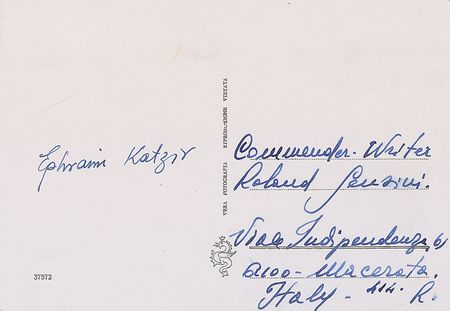 Ephraim Katzir
VERA FOTOGRAFIA RIPRODUZIONE VIETATA
Commender-Writer
Roland Gensini.
Viale Indipendenza, 6,
62100-Macerata.
Italy - 414. R.
37572